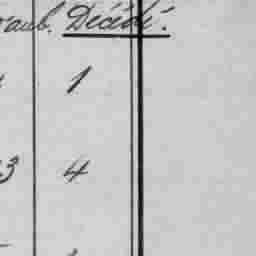 aub. Décédé.
1
3 4